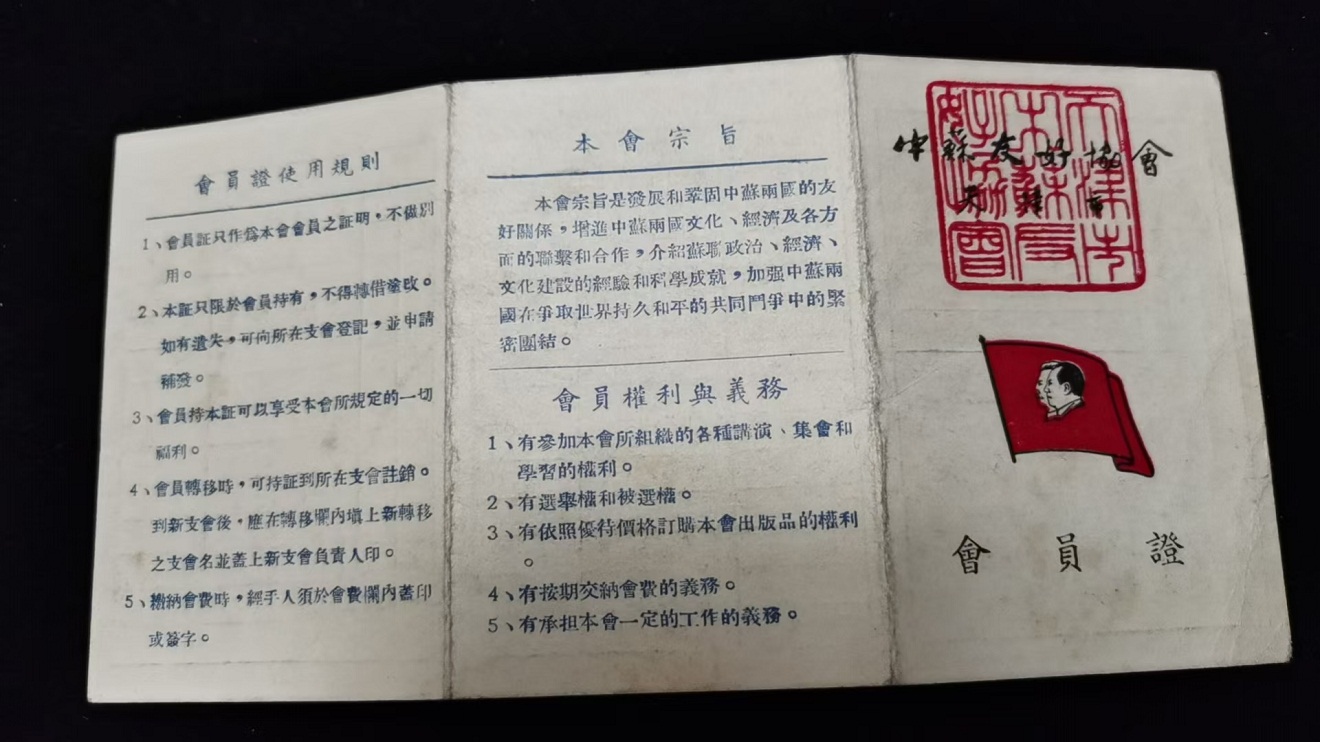 會員證使用規則
1、會員証只作爲本會會員之証明，不做別
用。
2、本証只限於會員持有，不得轉借塗改。
如有遺失，可向所在支會登記，並申請
補發。
3、會員持本証可以享受本會所規定的一切
福利。
4、會員轉移時，可持証到所在支會註銷。
到新支會後，應在轉移欄內填上新轉移
之支會名並蓋上新支會負責人印。
5、繳納會費時，經手人須於會費欄內蓋印
或簽字。
本會宗旨
本會宗旨是發展和鞏固中蘇兩國的友
好關係，增進中蘇兩國文化、經濟及各方
面的聯繫和合作，介紹蘇聯政治、經濟、
文化建設的經驗和科學成就，加强中蘇兩
國在爭取世界持久和平的共同鬥爭中的緊
密團結。
會員權利與義務
1、有參加本會所組織的各種講演、集會和
學習的權利。
2、有選舉權和被選權。
3、有依照優待價格訂購本會出版品的權利
。
4、有按期交納會費的義務。
5、有承担本會一定的工作的義務。
中蘇友好協會
天津市
天津市中蘇友好協會
會員證